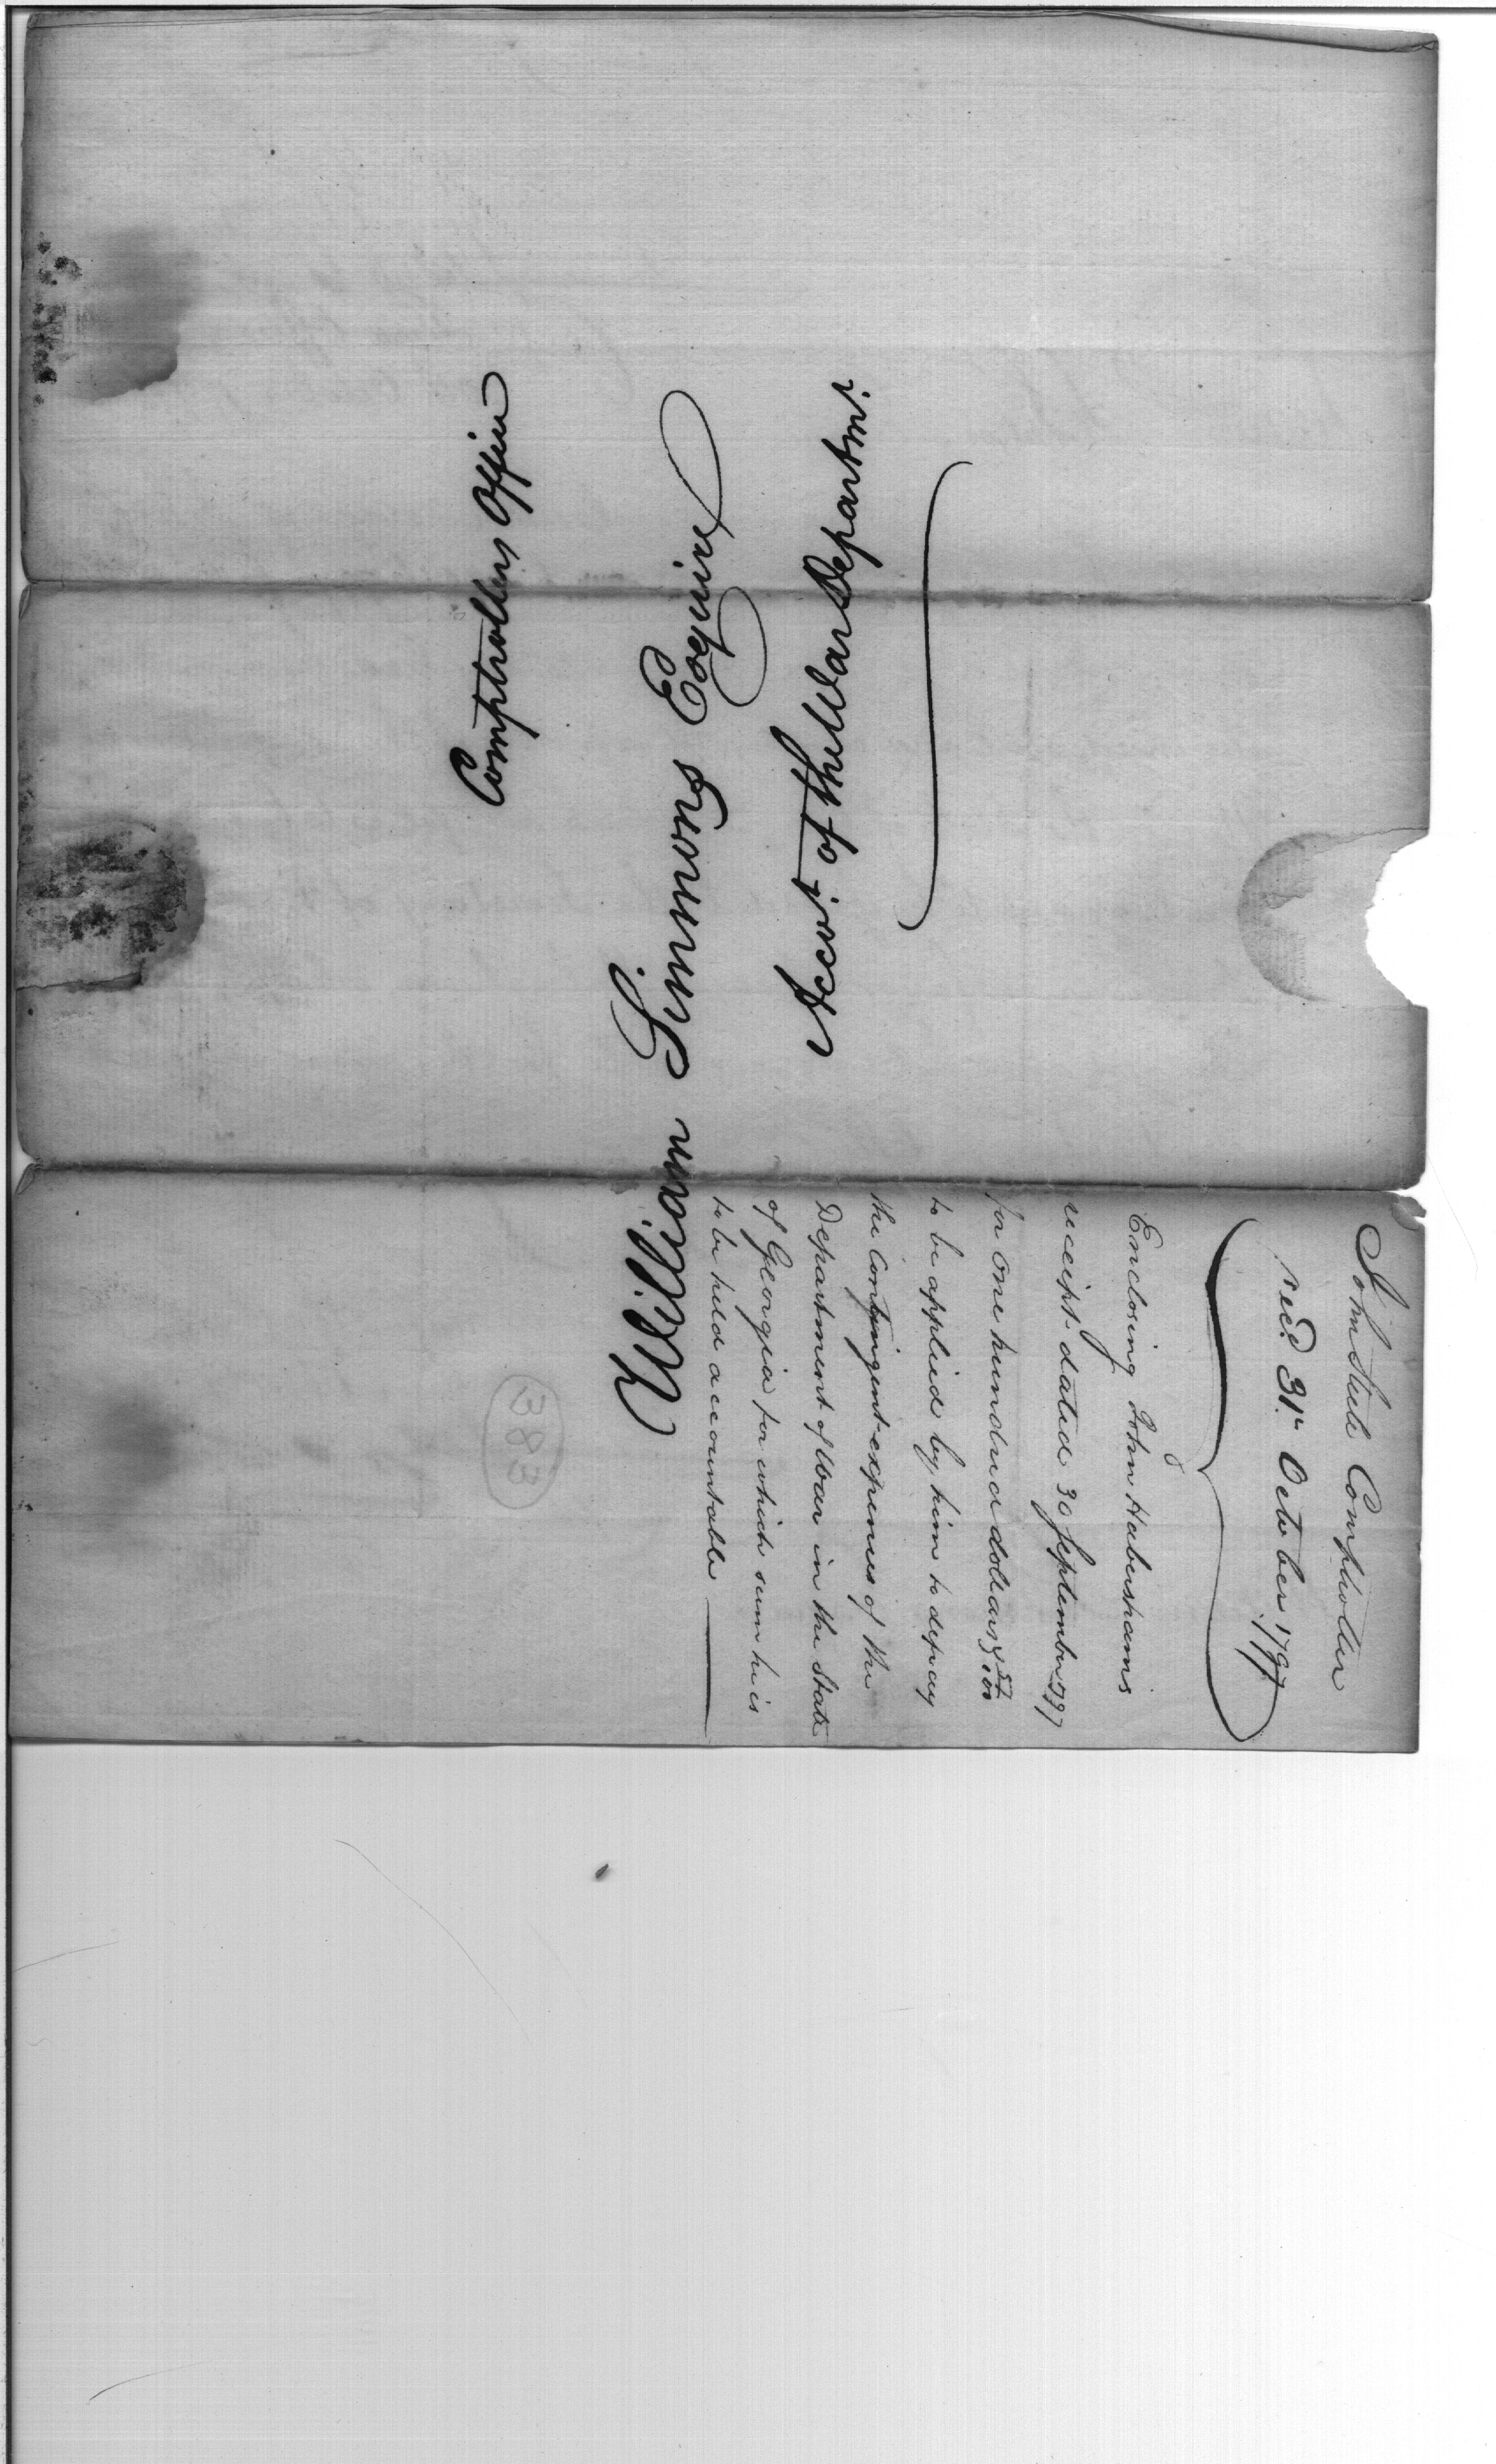 Comptrollers Office
William Simmons Esquire
Accot. of the War Departmt.
John Steele Comptroller
recd. 31st. October 1797
Enclosing John Habershams
receipt dated 30 September 1797
for one hundred dollars &
to be applied by him to defray
the Contingent expences of the
Department of War in the State
of Georgia for which sum he is
to be held accountable
383